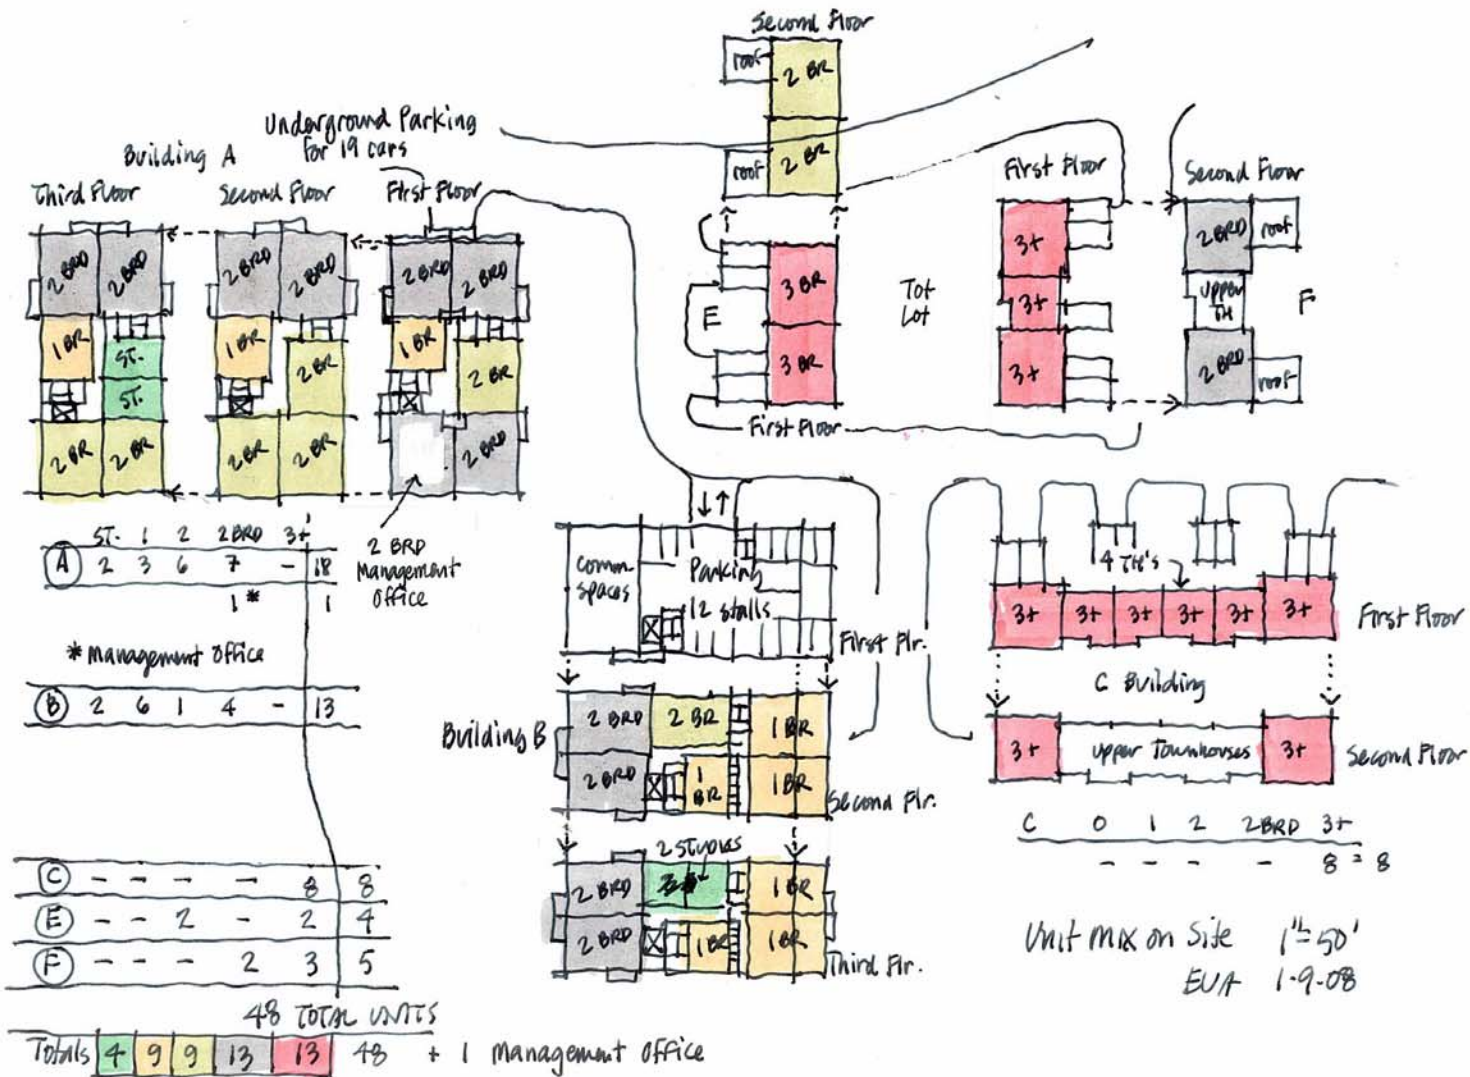 Second Floor
roof
2 BR
roof
2 BR
Underground Parking
for 19 cars
Building A
Third Floor
Second Floor
First Floor
2 BRD
2 BRD
1 BR
ST.
ST.
2 BR
2 BR
2 BRD
2 BRD
1 BR
2 BR
2 BR
2 BR
2 BRD
2 BRD
1 BR
2 BR
2 BRD
2 BRD
Management
Office
3 BR
3 BR
E
First Floor
Tot
Lot
First Floor
3+
3+
3+
Second Floor
2 BRD
roof
upper
TH
F
2 BRD
roof
ST. 1 2 2 BRD 3+
A 2 3 6 7 - 18
1 * 1
* Management Office
B 2 6 1 4 - 13
C - - - - 8 8
E - - 2 - 2 4
F - - - 2 3 5
48 TOTAL UNITS
Totals 4 9 9 13 13 48 + 1 Management Office
↓ ↑
comm
spaces
Parking
12 stalls
First Flr.
Building B
2 BRD
2 BR
1 BR
2 BRD
1
BR
1 BR
Second Flr.
2 STUDIOS
2 BRD
1 BR
2 BRD
1 BR
1 BR
Third Flr.
4 TH's
3+ 3+ 3+ 3+ 3+ 3+
First Floor
C Building
3+ upper Townhouses 3+
Second Floor
C 0 1 2 2BRD 3+
- - - - 8 = 8
Unit Mix on Site 1"=50'
EUA 1-9-08